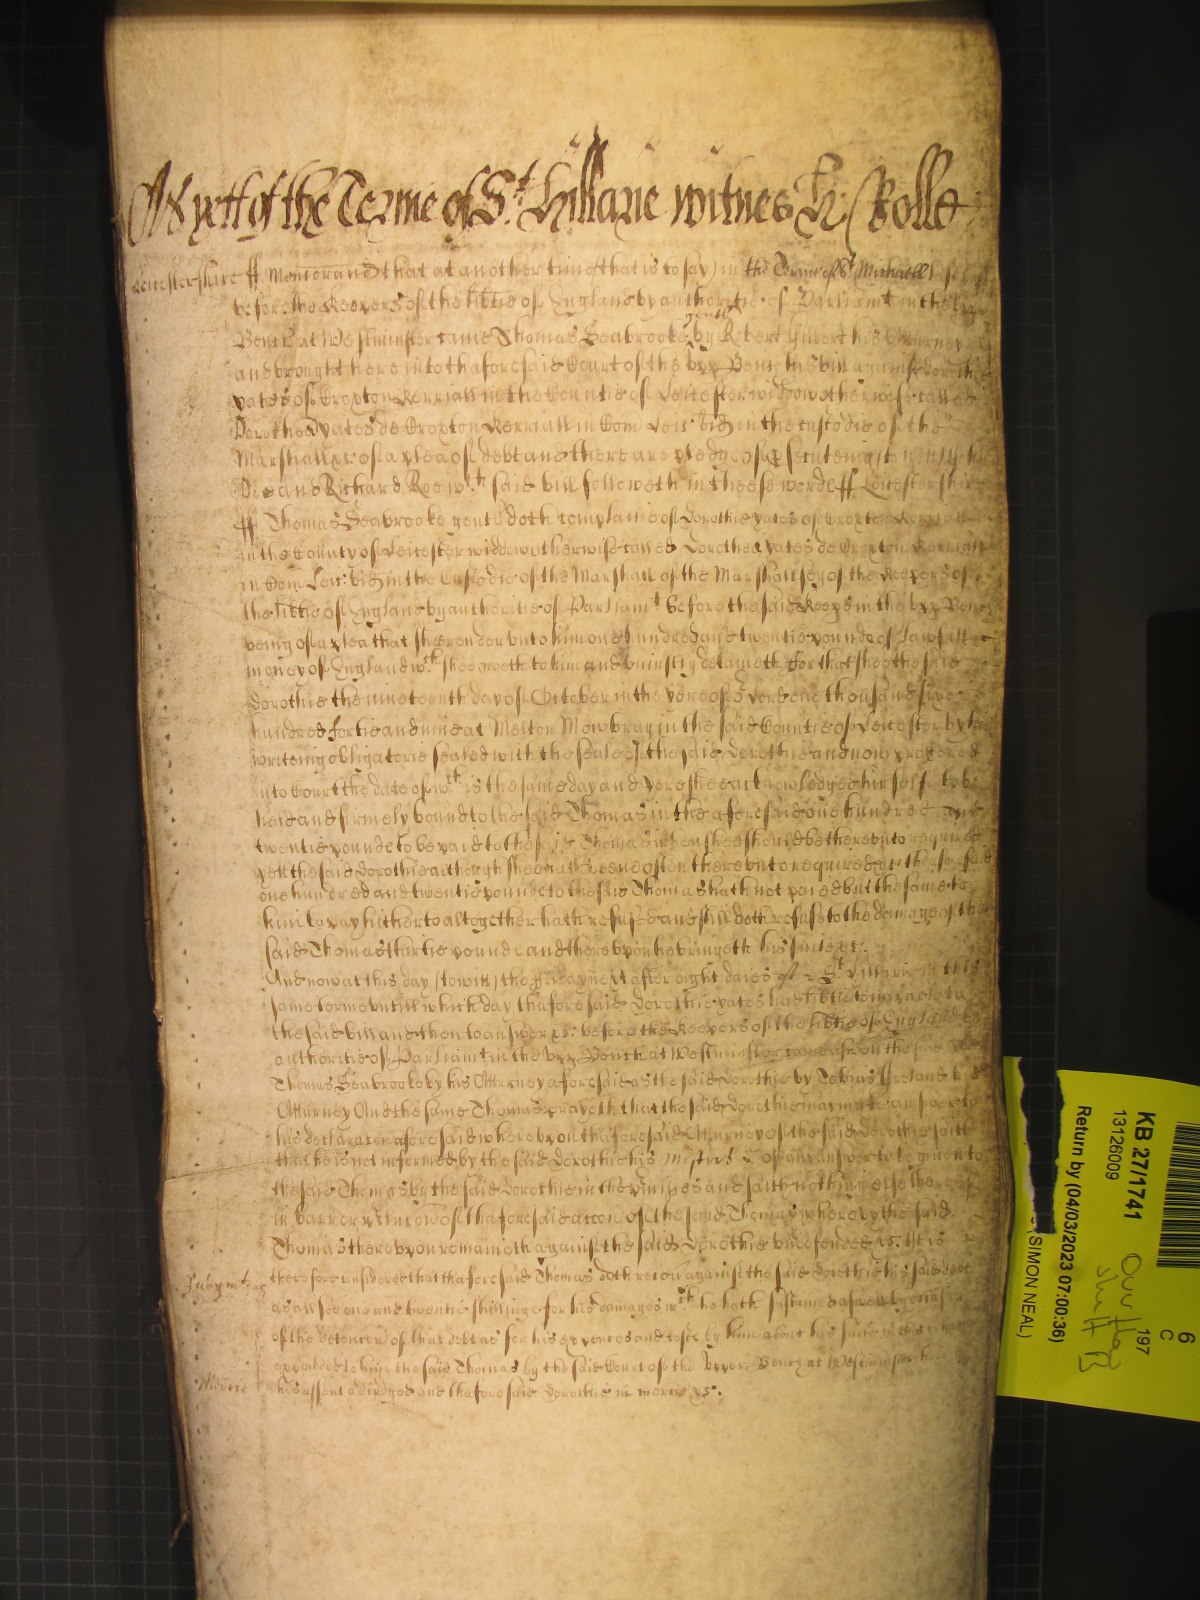 As yett of the Terme of St Hillarie witnes H: Rolle
Leicestershire ff Memorand that at another time that is to say in the Terme of St Michaell
before the Keepers of the libtie of England by authoritie of Parliamt in the vpp
Bench at Westminster came Thomas Seabrooke gent by Robert his Atturney
and brought here into thaforesaid Court of the vpp Bench his bill against Dorothie
yates of Croxton Kerriall in the Countie of Leicester widdow otherwise called
Dorothea yates de Croxton Kerriall in Com Leic vid in the custodie of the
Marshall &c of a plea of debt and there are pledges of psecuteing to witt John
Doe and Richard Roe wch said bill followeth in theese words ff Leicestershire
ff Thomas Seabrooke gent doth complaine of Dorothie yates of Croxton Kerriall
in the County of Leicester widdow otherwise called Dorothea yates de Croxton Kerriall
in Com Leic: vid in the Custodie of the Marshall of the Marshallsey of the Keepers of
the libtie of England by authoritie of Parliamt before the said Keeps in the vpp Bench
being of a plea that shee render vnto him one hundred and twentie pounds of lawfull
money of England wch shee oweth to him and vniustly detaineth For that shee the said
Dorothie the nineteenth day of October in the yere of or Lord one thousand sixe
hundred fortie and nine at Melton Mowbray in the said Countie of Leicester by her
writeing obligatorie sealed with the seale of the said Dorothie and now proffered
into Court the date of wch is the same day and yere shee acknowledged hirself to be
held and firmely bound to the said Thomas in the aforesaid one hundred and
twentie pounds to be paid to the said Thomas when shee should be therevnto required
yett the said Dorothie although shee hath beene often therevnto required &c thaforesaid
one hundred and twentie pounds to the said Thomas hath not paied but the same to
him to pay hitherto altogether hath refused and still doth refuse to the damage of the
said Thomas thirtie pounds and therevpon he bringeth his suite &c:.
And now at this day (to witt) the Friday next after eight daies of St Hillarie in this
same terme vntill which day thaforesaid Dorothie yates had libtie to imparle to
the said bill and then to answer &c: before the Keepers of the libtie of England by
authoritie of Parliamt in the vpp Bench at Westminster came aswell the said
Thomas Seabrooke by his Atturney aforesaid as the said Dorothie by Tobias his
Atturney And the same Thomas prayeth that the said Dorothie may make answere to
his declaracon aforesaid wherevpon thaforesaid Atturney of the said Dorothie saith
that he is not informed by the said Dorothie his of any answer to be given to
the said Thomas by the said Dorothie in the pmisses and saith nothing else thereof
in barr or of thaforesaid accon of the said Thomas whereby the said
Thomas therevpon remaineth against the said Dorothie vndefended &c: It is
Judgmt therefore considered that thaforesaid Thomas doth recou against the said Dorothie his said debt
as allsoe one and twentie shillings for his damages wch he hath susteined aswell by occasion
of the detencon of that debt as for his expences and costs by him about his suite in this
expended to him the said Thomas by the said Court of the vpper Bench at Westminster here
Mercie his assent adiudged and thaforesaid Dorothie in mercie &c:.
KB 27/1741
13126009
Return by (04/03/2023 07:00:36)
SIMON NEAL)
197
6
C